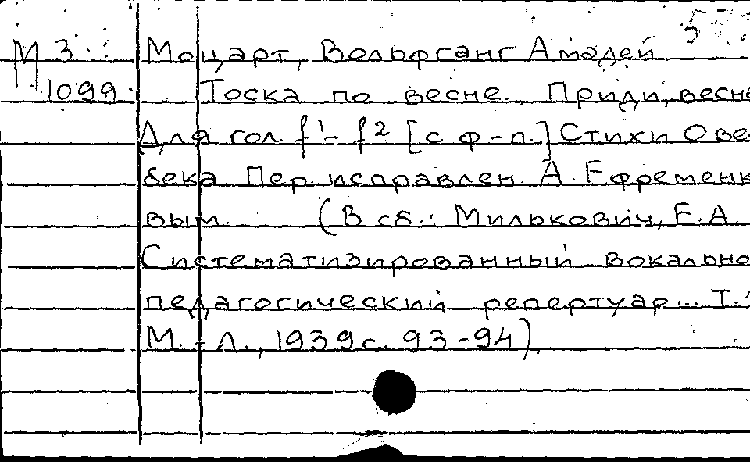 М 3. Моцарт, Вольфганг Амадей
1099. Тоска по весне. Приди, весн
Для гол. f¹- f² [с ф-п.] Стихи Ове
бека Пер. исправлен. А. Ефременк
вым. (В сб.: Милькович, Е.А.
Систематизированный вокально
педагогический репертуар... Т.
М.-Л., 1939 с. 93-94)